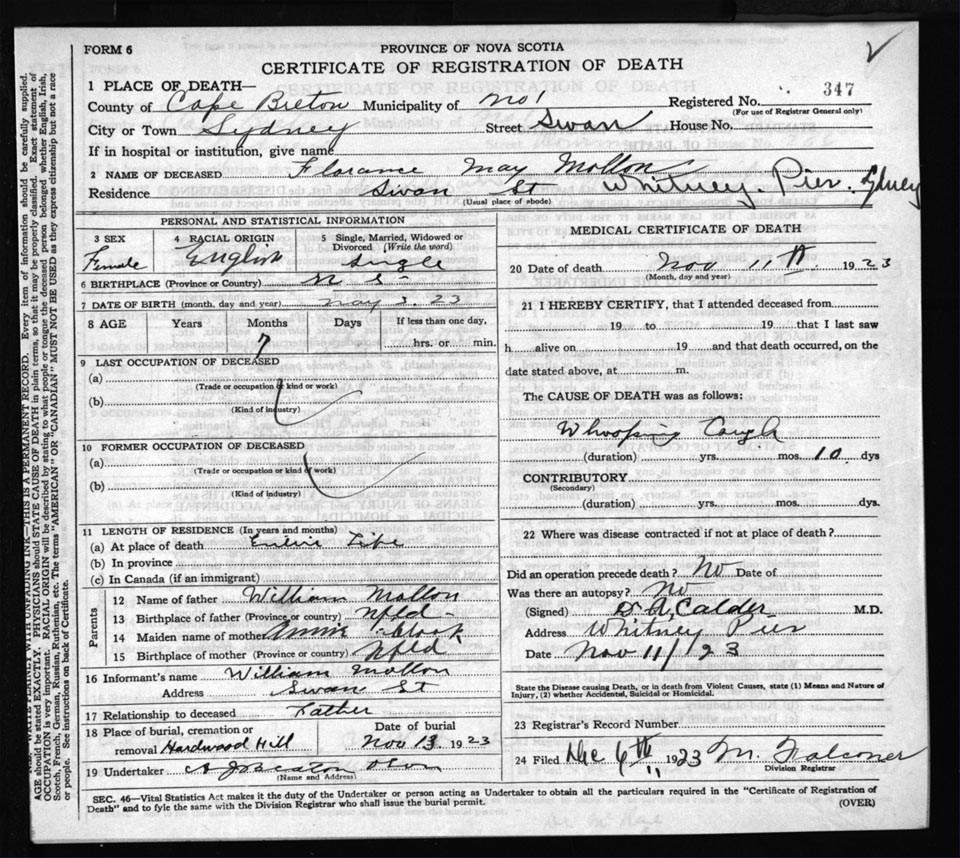 FORM 6
PROVINCE OF NOVA SCOTIA
CERTIFICATE OF REGISTRATION OF DEATH
1 PLACE OF DEATH—
County of Cape Breton Municipality of No 1 Registered No. 347
(For use of Registrar General only)
City or Town Sydney Street Swan House No.
If in hospital or institution, give name
2 NAME OF DECEASED Florance May Mollon
Residence Swan St Whitney Pier. Sydney
(Usual place of abode)
PERSONAL AND STATISTICAL INFORMATION
3 SEX 4 RACIAL ORIGIN 5 Single, Married, Widowed or Divorced (Write the word)
Female English Single
6 BIRTHPLACE (Province or Country) N S
7 DATE OF BIRTH (month, day and year) May 3. 23
8 AGE Years Months Days If less than one day,
7 hrs. or min.
9 LAST OCCUPATION OF DECEASED
(a)
(Trade or occupation or kind of work)
(b)
(Kind of industry)
10 FORMER OCCUPATION OF DECEASED
(a)
(Trade or occupation or kind of work)
(b)
(Kind of industry)
11 LENGTH OF RESIDENCE (In years and months)
(a) At place of death Life
(b) In province
(c) In Canada (if an immigrant)
Parents
12 Name of father William Mollon
13 Birthplace of father (Province or country) Nfld
14 Maiden name of mother
15 Birthplace of mother (Province or country) Nfld
16 Informant's name William Mollon
Address Swan St
17 Relationship to deceased Father
18 Place of burial, cremation or removal Hardwood Hill
Date of burial
Nov 13 1923
19 Undertaker
(Name and Address)
MEDICAL CERTIFICATE OF DEATH
20 Date of death Nov 11th. 1923
(Month, day and year)
21 I HEREBY CERTIFY, that I attended deceased from
19 to 19 that I last saw
h alive on 19 and that death occurred, on the
date stated above, at m.
The CAUSE OF DEATH was as follows:
Whooping Cough
(duration) yrs. mos. 10 dys
CONTRIBUTORY
(Secondary)
(duration) yrs. mos. dys.
22 Where was disease contracted if not at place of death?
Did an operation precede death? No Date of
Was there an autopsy? No
(Signed) D A Calder M.D.
Address Whitney Pier
Date Nov 11/23
State the Disease causing Death, or in death from Violent Causes, state (1) Means and Nature of
Injury, (2) whether Accidental, Suicidal or Homicidal.
23 Registrar's Record Number
24 Filed Dec 6th 1923 M. Falconer
Division Registrar
SEC. 46—Vital Statistics Act makes it the duty of the Undertaker or person acting as Undertaker to obtain all the particulars required in the "Certificate of Registration of
Death" and to fyle the same with the Division Registrar who shall issue the burial permit.
(OVER)
N.B.—WRITE PLAINLY WITH UNFADING INK—THIS IS A PERMANENT RECORD. Every item of information should be carefully supplied.
AGE should be stated EXACTLY. PHYSICIANS should STATE CAUSE OF DEATH in plain terms, so that it may be properly classified. Exact statement of
OCCUPATION is very important. RACIAL ORIGIN will be described by stating to what people or tongue the deceased person belonged whether English, Irish,
Scotch, French, German, Russian, Ruthenian, etc. The terms "AMERICAN" OR "CANADIAN" MUST NOT BE USED as they express citizenship but not a race
or people. See instructions on back of Certificate.